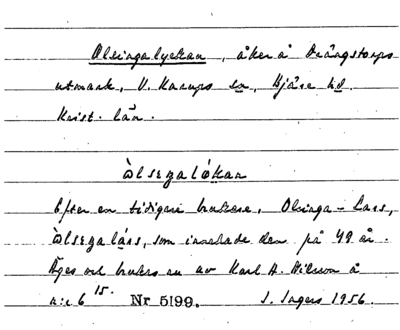 Olsingalyckan, åker å Drängstorps
utmark, V. Karups sn, Bjäre hd.
Krist. län.
Efter en tidigare brukare, Olsinga-Lars,
som innehade den på 49 år.
Äges och brukas nu av Karl A. Nilsson å
n:r 6 15.
Nr 5199.
J. Ingers 1956.